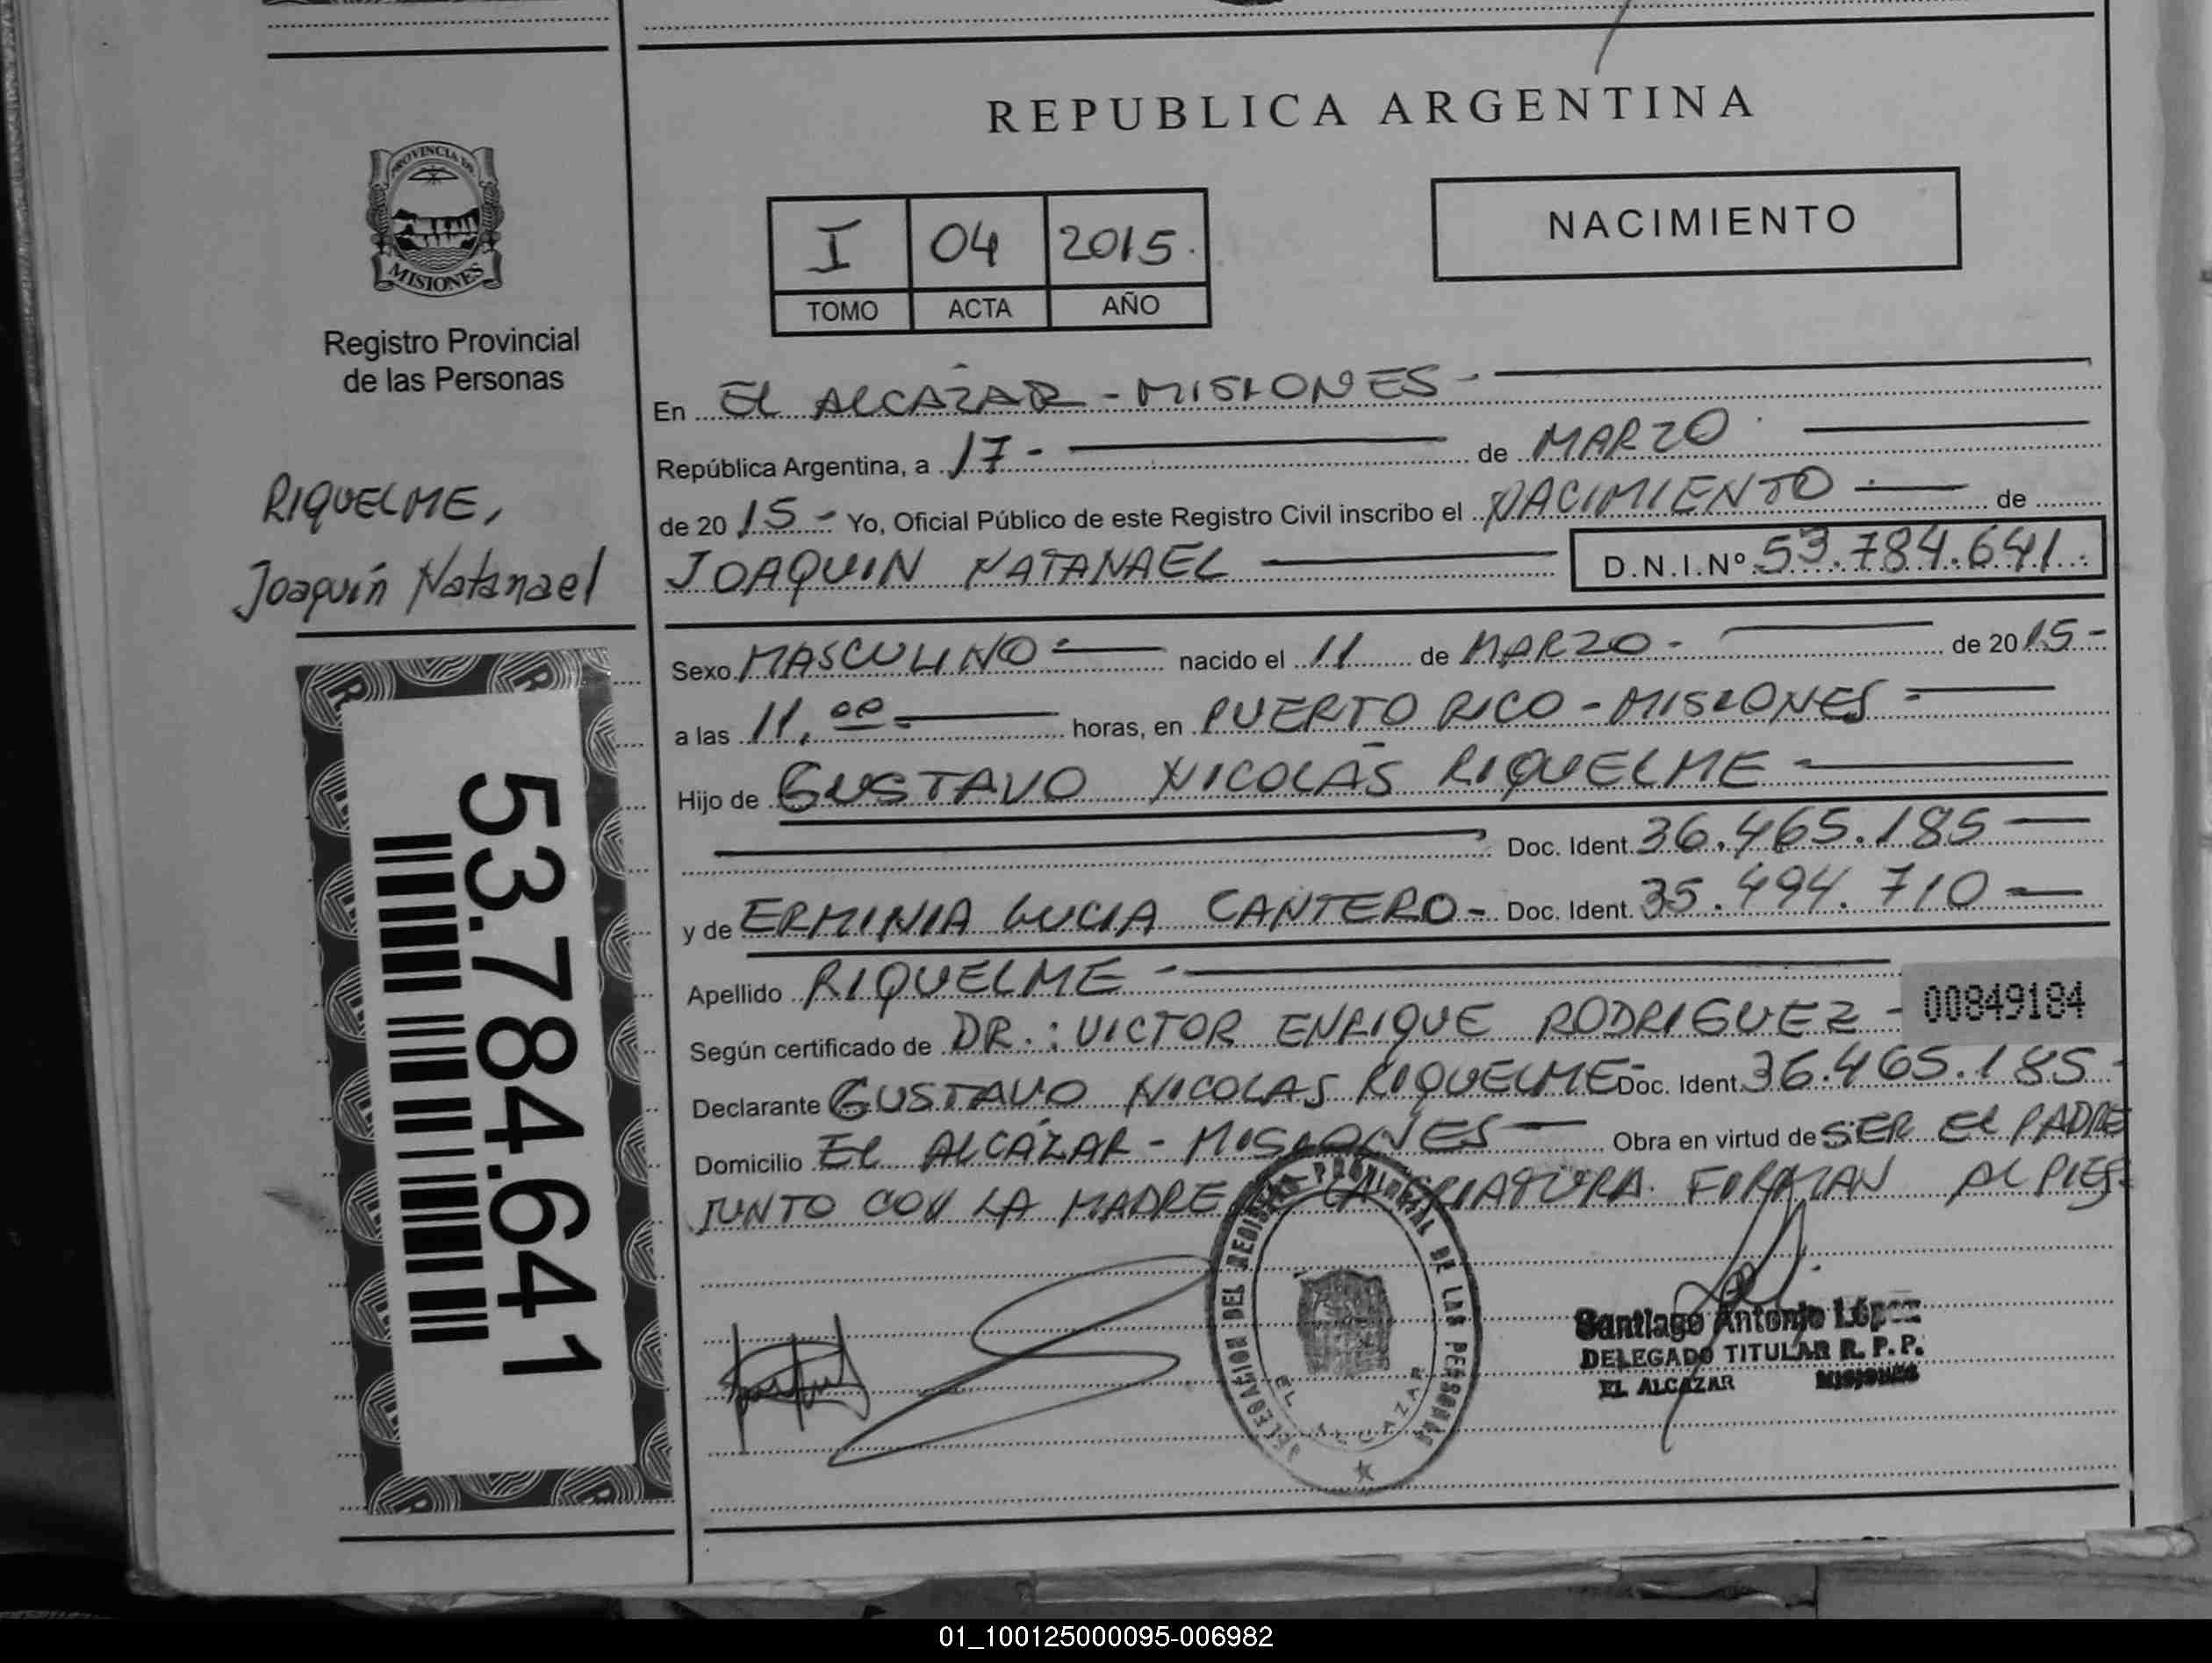 REPUBLICA ARGENTINA
PROVINCIA DE
MISIONES
Registro Provincial
de las Personas
RIQUELME,
Joaquín Natanael
53.784.641
I 04 2015.
TOMO ACTA AÑO
NACIMIENTO
En EL ALCAZAR - MISIONES -
República Argentina, a 17 - de MARZO
de 20 15 - Yo, Oficial Público de este Registro Civil inscribo el NACIMIENTO de
JOAQUIN NATANAEL D.N.I.Nº 53.784.641.
Sexo MASCULINO - nacido el 11 de MARZO - de 20 15 -
a las 11,00 horas, en PUERTO RICO - MISIONES -
Hijo de GUSTAVO NICOLÁS RIQUELME -
Doc. Ident. 36.465.185 -
y de ERMINIA LUCIA CANTERO - Doc. Ident. 35.494.710 -
Apellido RIQUELME -
Según certificado de DR.: VICTOR ENRIQUE RODRIGUEZ - 00849184
Declarante GUSTAVO NICOLAS RIQUELME - Doc. Ident. 36.465.185 -
Domicilio EL ALCÁZAR - MISIONES - Obra en virtud de SER EL PADRE
JUNTO CON LA MADRE LA CRIATURA. FIRMAN AL PIE.
DELEGACION DEL REGISTRO PROVINCIAL DE LAS PERSONAS
EL ALCAZAR
Santiago Antonio López
DELEGADO TITULAR R. P. P.
EL ALCAZAR MISIONES
01_100125000095-006982